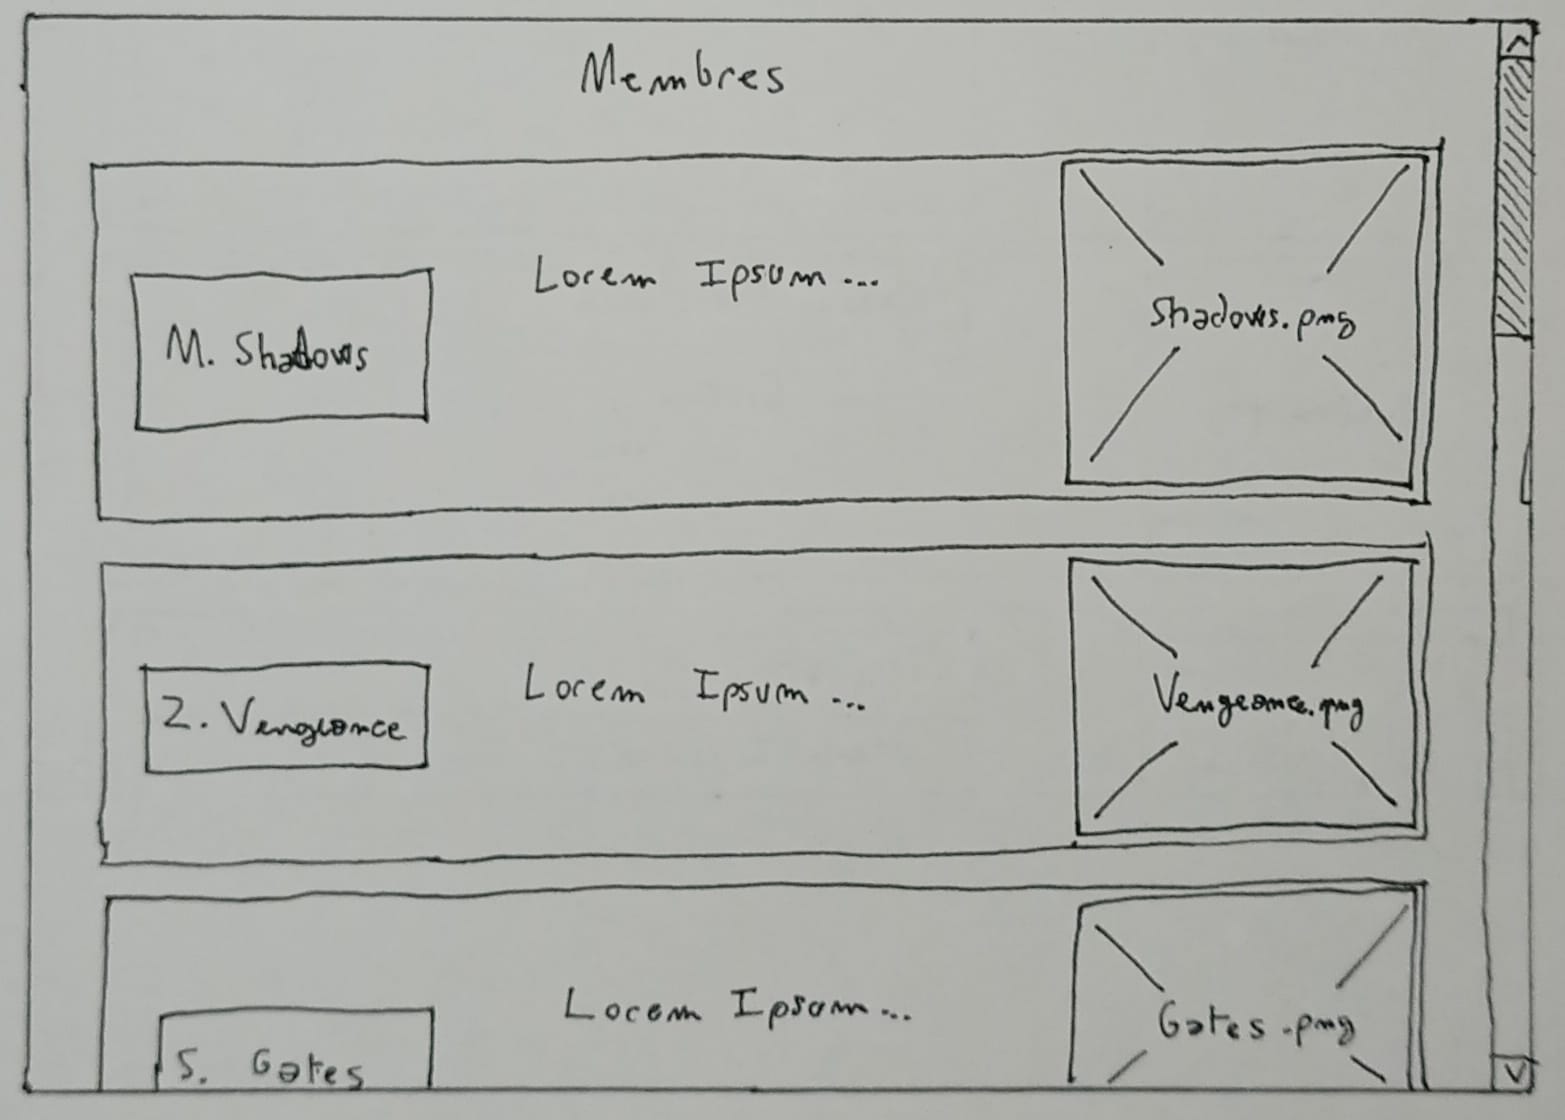 Membres
M. Shadows
Lorem Ipsum...
Shadows.png
Z. Vengeance
Lorem Ipsum...
Vengeance.png
S. Gates
Lorem Ipsum...
Gates.png